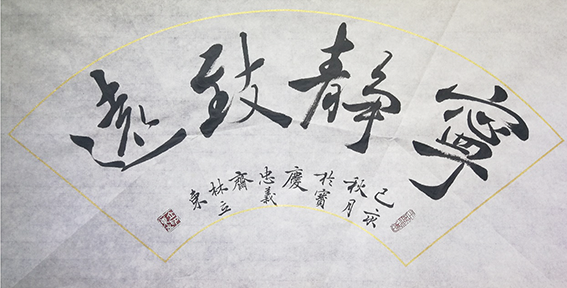 寧靜致遠
己亥
秋月
於寶
慶
忠義
齋
林立
東